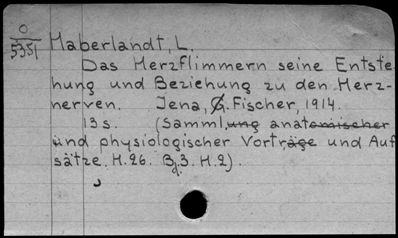 O
5351
Haberlandt, L.
Das Herzflimmern seine Entste
hung und Beziehung zu den Herz-
nerven. Jena, G. Fischer, 1914.
13 s. (Samml. ung anatomischer
und physiologischer Vorträge und Auf
sätze. H. 26. Bj. 3. H. 2).